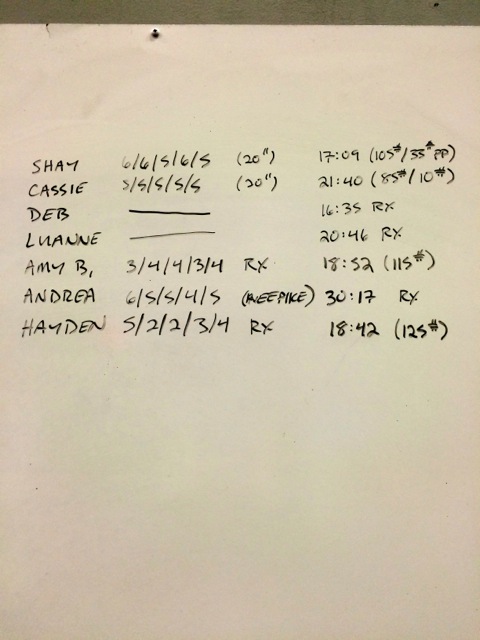 SHAY 6/6/5/6/5 (20") 17:09 (105#/33# PP)
CASSIE 5/5/5/5/5 (20") 21:40 (85#/10#)
DEB 16:35 RX
LUANNE 20:46 RX
AMY B, 3/4/4/3/4 RX 18:52 (115#)
ANDREA 6/5/5/4/5 30:17 RX
HAYDEN 5/2/2/3/4 RX 18:42 (125#)